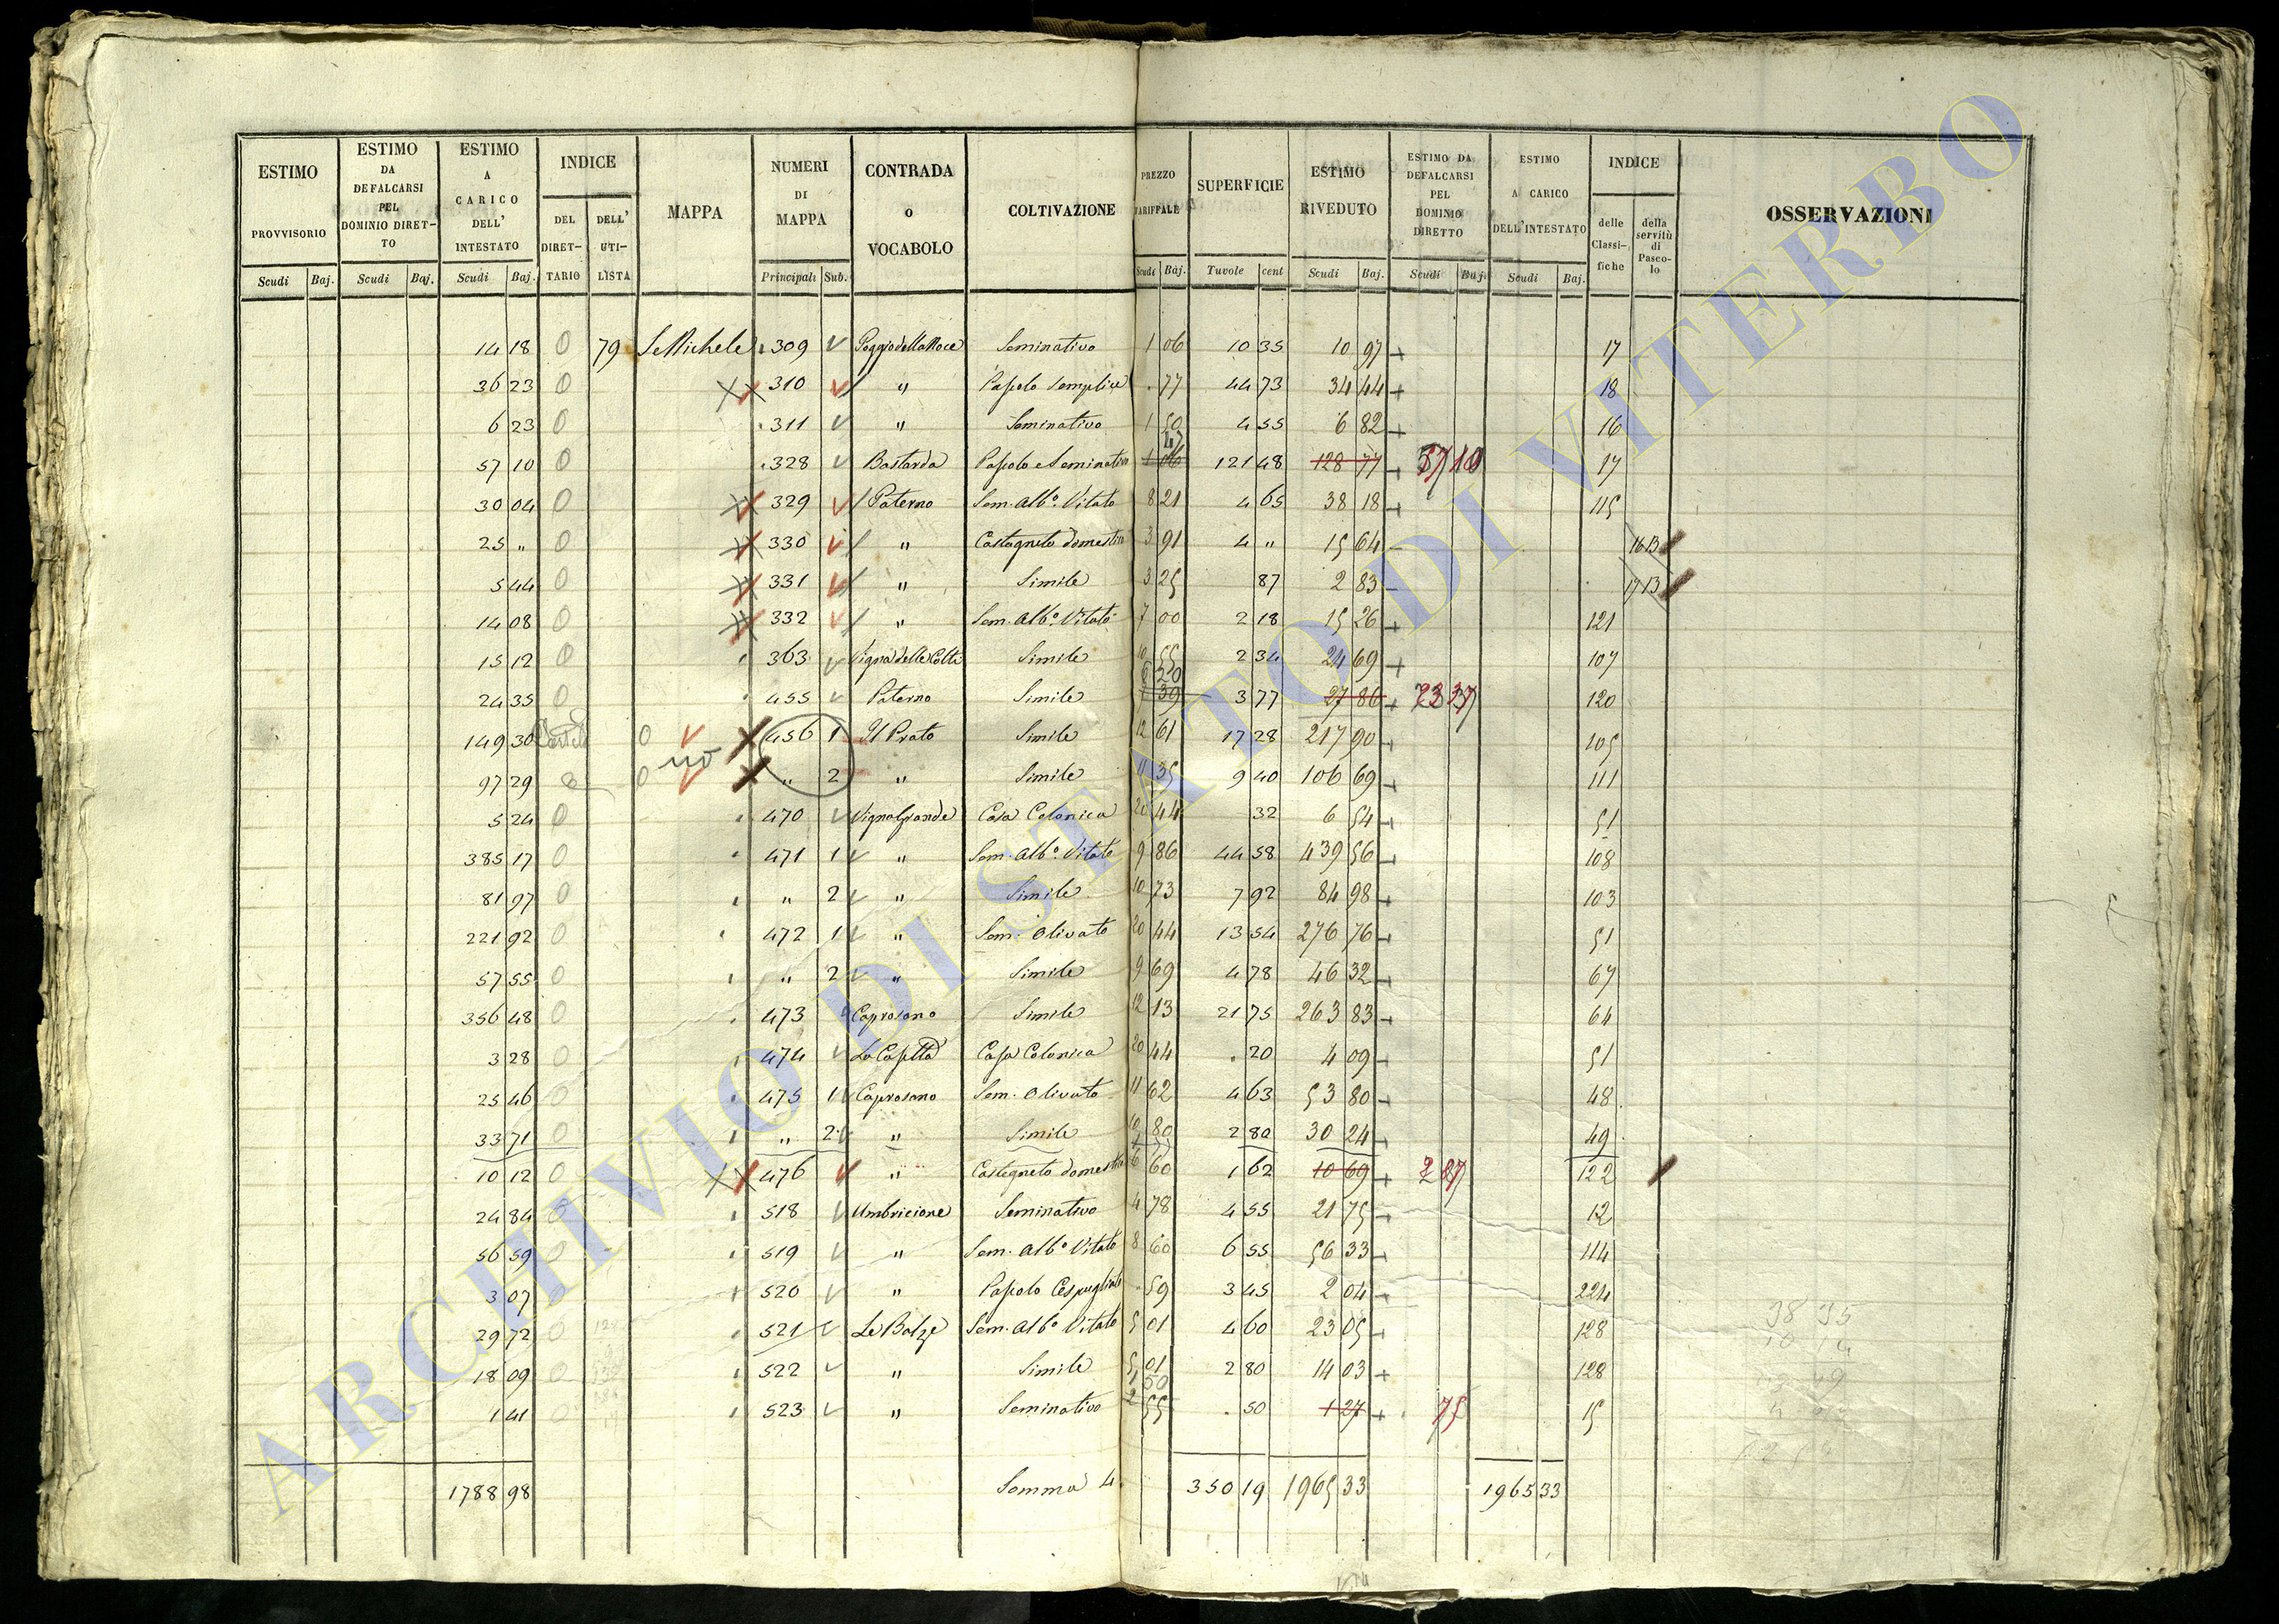 ESTIMO PROVVISORIO Scudi Baj.
ESTIMO DA DEFALCARSI PEL DOMINIO DIRET-TO Scudi Baj.
ESTIMO A CARICO DELL' INTESTATO Scudi Baj.
INDICE DEL DIRET-TARIO DELL' UTI-LISTA
MAPPA
NUMERI DI MAPPA Principali Sub.
CONTRADA O VOCABOLO
COLTIVAZIONE
PREZZO TARIFFALE Scudi Baj.
SUPERFICIE Tavole cent
ESTIMO RIVEDUTO Scudi Baj.
ESTIMO DA DEFALCARSI PEL DOMINIO DIRETTO Scudi Baj.
ESTIMO A CARICO DELL'INTESTATO Scudi Baj.
INDICE delle Classi-fiche della servitù di Pasco-lo
OSSERVAZIONI
14 18 0 79 S. Michele 309 Poggio della Noce Seminativo 1 06 10 35 10 97 17
36 23 0 310 " Pascolo semplice . 77 44 73 34 44 18
6 23 0 311 " Seminativo 1 50 4 55 6 82 16
57 10 0 328 Bastarda Pascolo e Seminativo 47 1 06 121 48 128 77 57 10 17
30 04 0 329 Paterno Sem. Alb.º Vitato 8 21 4 65 38 18 115
25 " 0 330 " Castagneto domestico 3 91 4 " 15 64 16 13
5 44 0 331 " Simile 3 25 87 2 83 17 13
14 08 0 332 " Sem. Alb.º Vitato 7 00 2 18 15 26 121
15 12 0 363 Vigna delle Colti Simile 10 55 2 34 24 69 107
24 35 0 455 Paterno Simile 6 20 7 39 3 77 27 86 23 37 120
149 30 0 no 456 1 Il Prato Simile 12 61 17 28 217 90 105
97 29 0 " 2 " Simile 11 35 9 40 106 69 111
5 24 0 470 Vigna Grande Casa Colonica 20 44 32 6 54 51
385 17 0 471 1 " Sem. Alb.º Vitato 9 86 44 58 439 56 108
81 97 0 " 2 " Simile 10 73 7 92 84 98 103
221 92 0 472 1 " Sem. Olivato 20 44 13 54 276 76 51
57 55 0 " 2 " Simile 9 69 4 78 46 32 67
356 48 0 473 Caprosano Simile 12 13 21 75 263 83 64
3 28 0 474 La Casetta Casa Colonica 20 44 . 20 4 09 51
25 46 0 475 1 Caprosano Sem. Olivato 11 62 4 63 53 80 48
33 71 0 " 2 " Simile 10 80 2 80 30 24 49
10 12 0 476 " Castagneto domestico 6 60 1 62 10 69 2 87 122
24 84 0 518 Umbricione Seminativo 4 78 4 55 21 75 12
56 59 0 519 " Sem. Alb.º Vitato 8 60 6 55 56 33 114
3 07 0 520 " Pascolo Cespugliato . 59 3 45 2 04 224
29 72 0 521 Le Balze Sem. Alb.º Vitato 5 01 4 60 23 05 128
18 09 0 522 " Simile 5 01 2 80 14 03 128
1 41 0 523 " Seminativo 1 50 2 55 . 50 1 27 . 75 15
1788 98 Somma 4. 350 19 1965 33 1965 33
ARCHIVIO DI STATO DI VITERBO